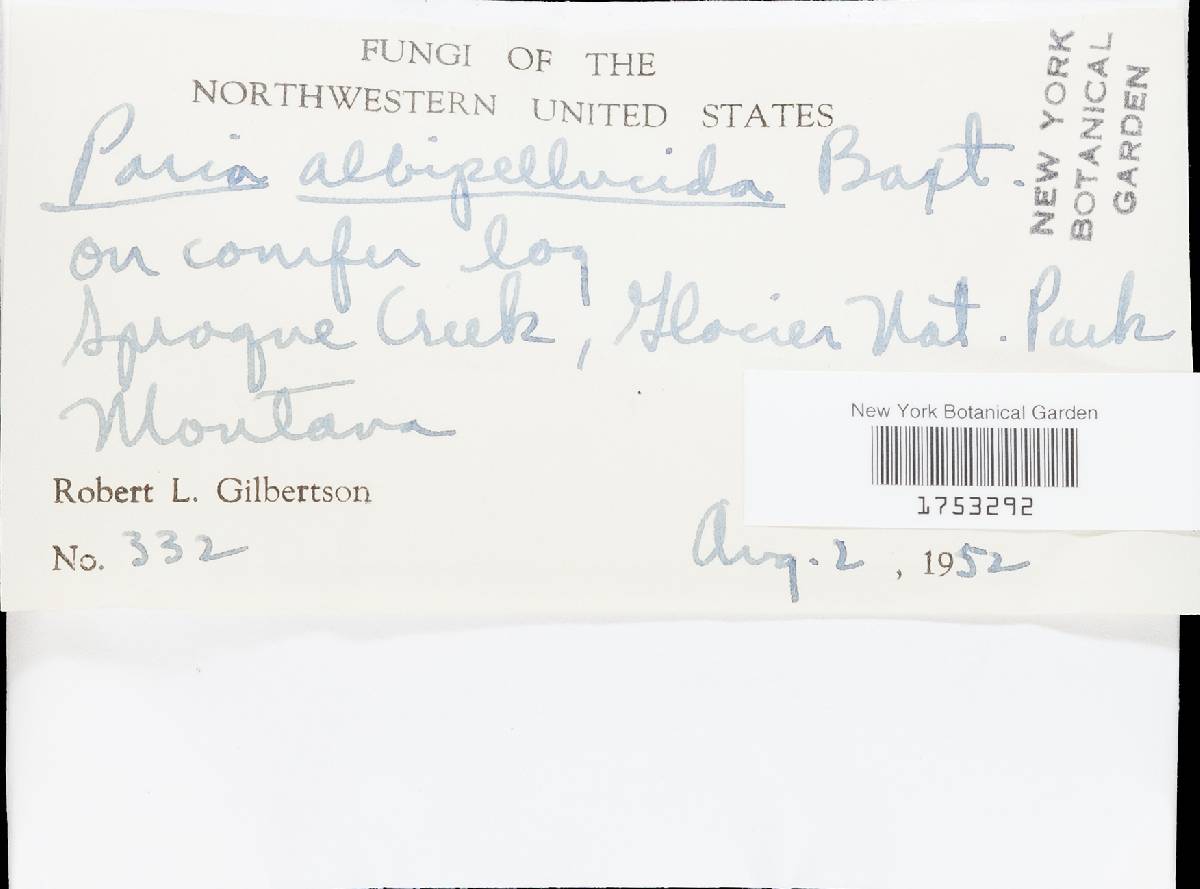 FUNGI OF THE
NORTHWESTERN UNITED STATES
Poria albipellucida Baxt.
on conifer log
Sprague Creek, Glacier Nat. Park
Montana
Robert L. Gilbertson
No. 332
Aug. 2, 1952
NEW YORK
BOTANICAL
GARDEN
New York Botanical Garden
1753292